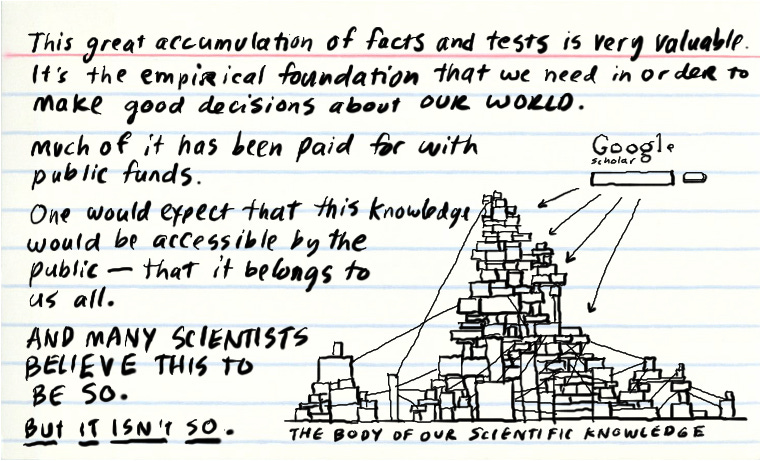 This great accumulation of facts and tests is very valuable.
It's the empirical foundation that we need in order to
make good decisions about OUR WORLD.
Much of it has been paid for with
public funds.
One would expect that this knowledge
would be accessible by the
public — that it belongs to
us all.
AND MANY SCIENTISTS
BELIEVE THIS TO
BE SO.
BUT IT ISN'T SO.
Google
scholar
THE BODY OF OUR SCIENTIFIC KNOWLEDGE